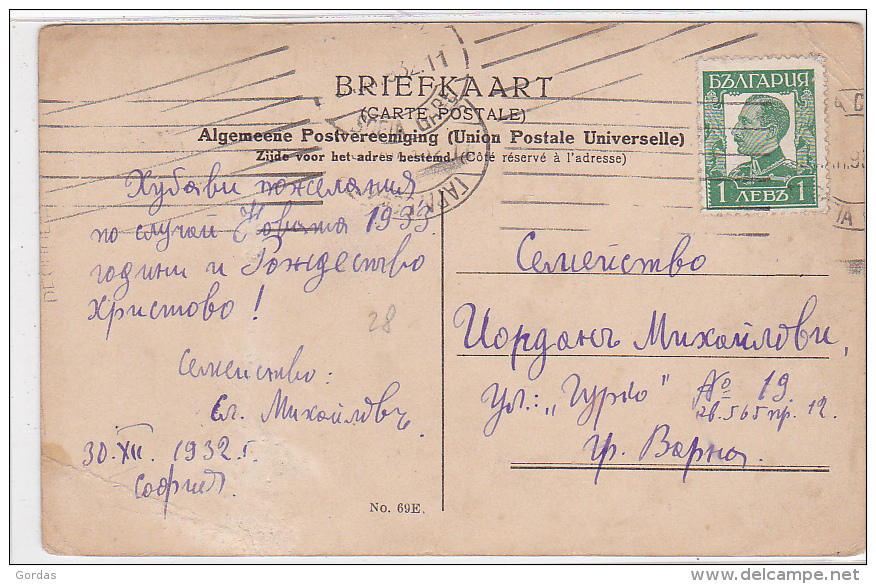 BRIEFKAART
(CARTE POSTALE)
Algemeene Postvereeniging (Union Postale Universelle)
Zijde voor het adres bestemd. (Côté réservé à l'adresse)
БЪЛГАРИЯ
1 ЛЕВЪ 1
Хубави пожелания
по случай Новата 1933
години и Рождество
Христово!
28
Семейство:
Сл. Михайловъ.
30.XII. 1932 г.
София.
No. 69E.
Семейство
Иорданъ Михайлови,
ул.: „Гурко" № 19
гр. Варна.
Gordas
delcampe.net